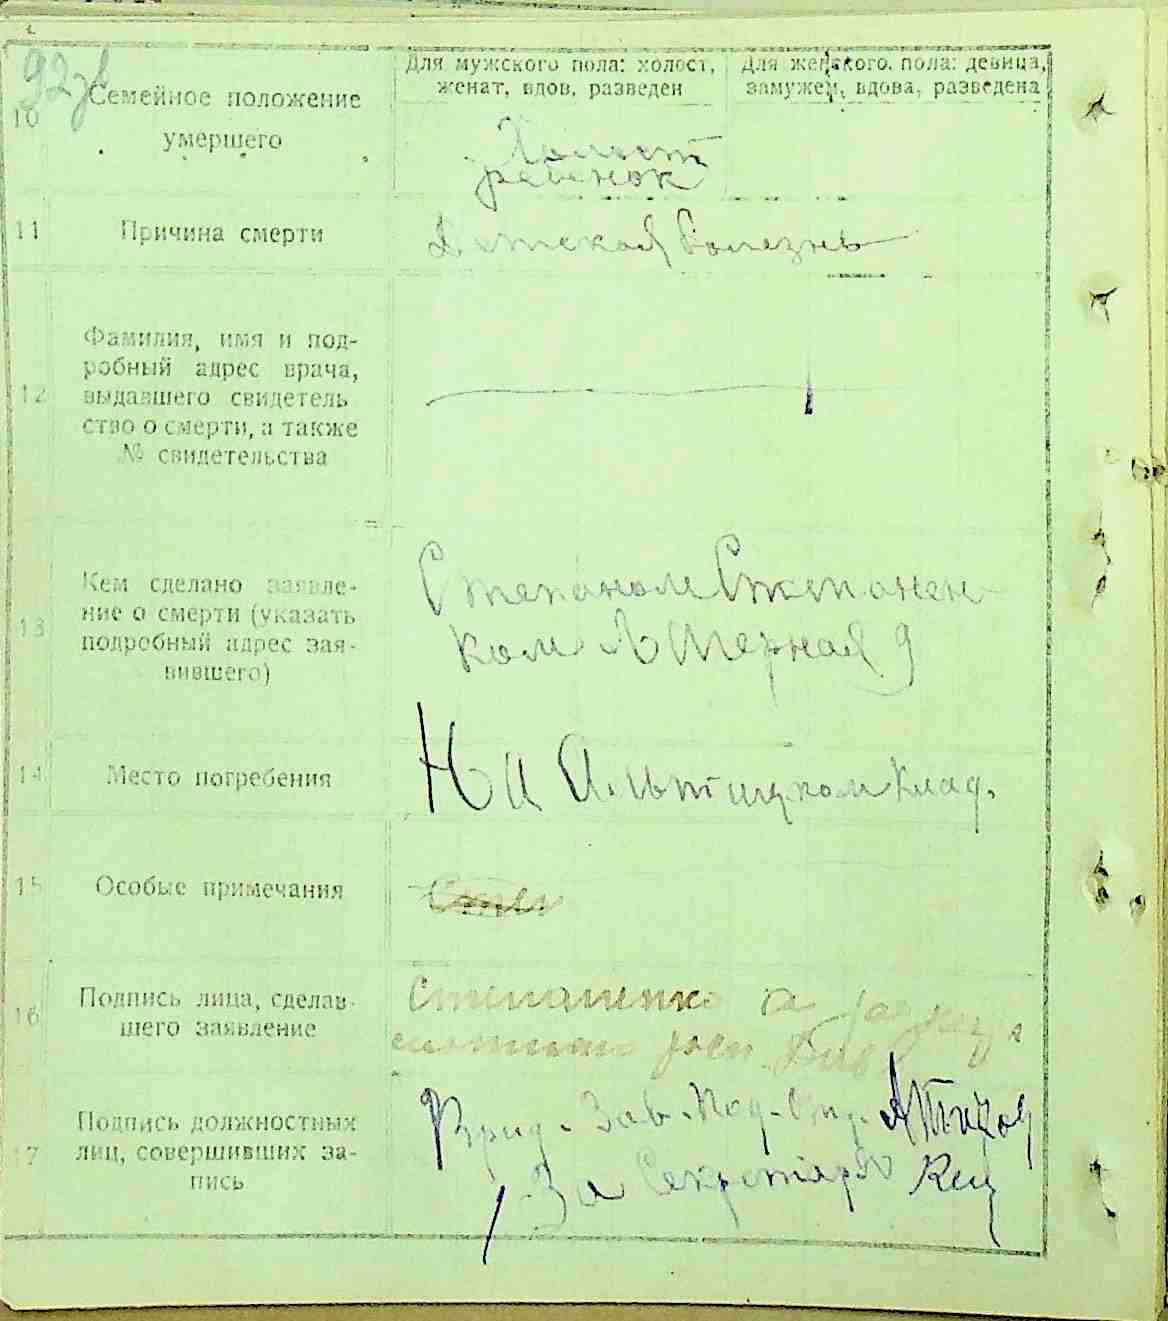 92зв
Для мужского пола: холост,
женат, вдов, разведен
Для женского. пола: девица,
замужем, вдова, разведена
10
Семейное положение
умершего
Холост
ребенок
11
Причина смерти
Детская болезнь
12
Фамилия, имя и под-
робный адрес врача,
выдавшего свидетель
ство о смерти, а также
№ свидетельства
13
Кем сделано заявле-
ние о смерти (указать
подробный адрес зая-
вившего)
Степаном Степанен-
ком 9
14
Место погребения
На клад.
15
Особые примечания
16
Подпись лица, сделав-
шего заявление
Степаненко а
17
Подпись должностных
лиц, совершивших за-
пись
Врид. Зав. Под. Отд.
За Секретаря